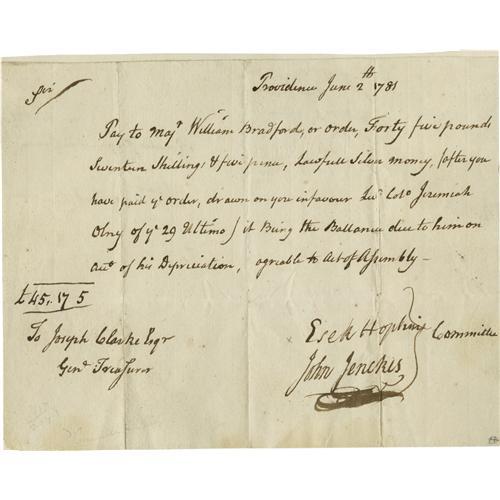 Sir
Providence June 2th 1781
Pay to Majr William Bradford, or order, Forty five pounds
Seventeen Shillings & five pence, Lawfull Silver money, (after you
have paid ye order, drawn on you infavour Lut Colo Jeremiah
Olny of ye 29 Ultimo) it Being the Ballance due to him on
acct of his Depreciation, agreable to Act of Assembly -
£45.. 17 5
To Joseph Clarke Esqr
Genl Treasurer
Esek Hopkins
Committee
John Jenckes